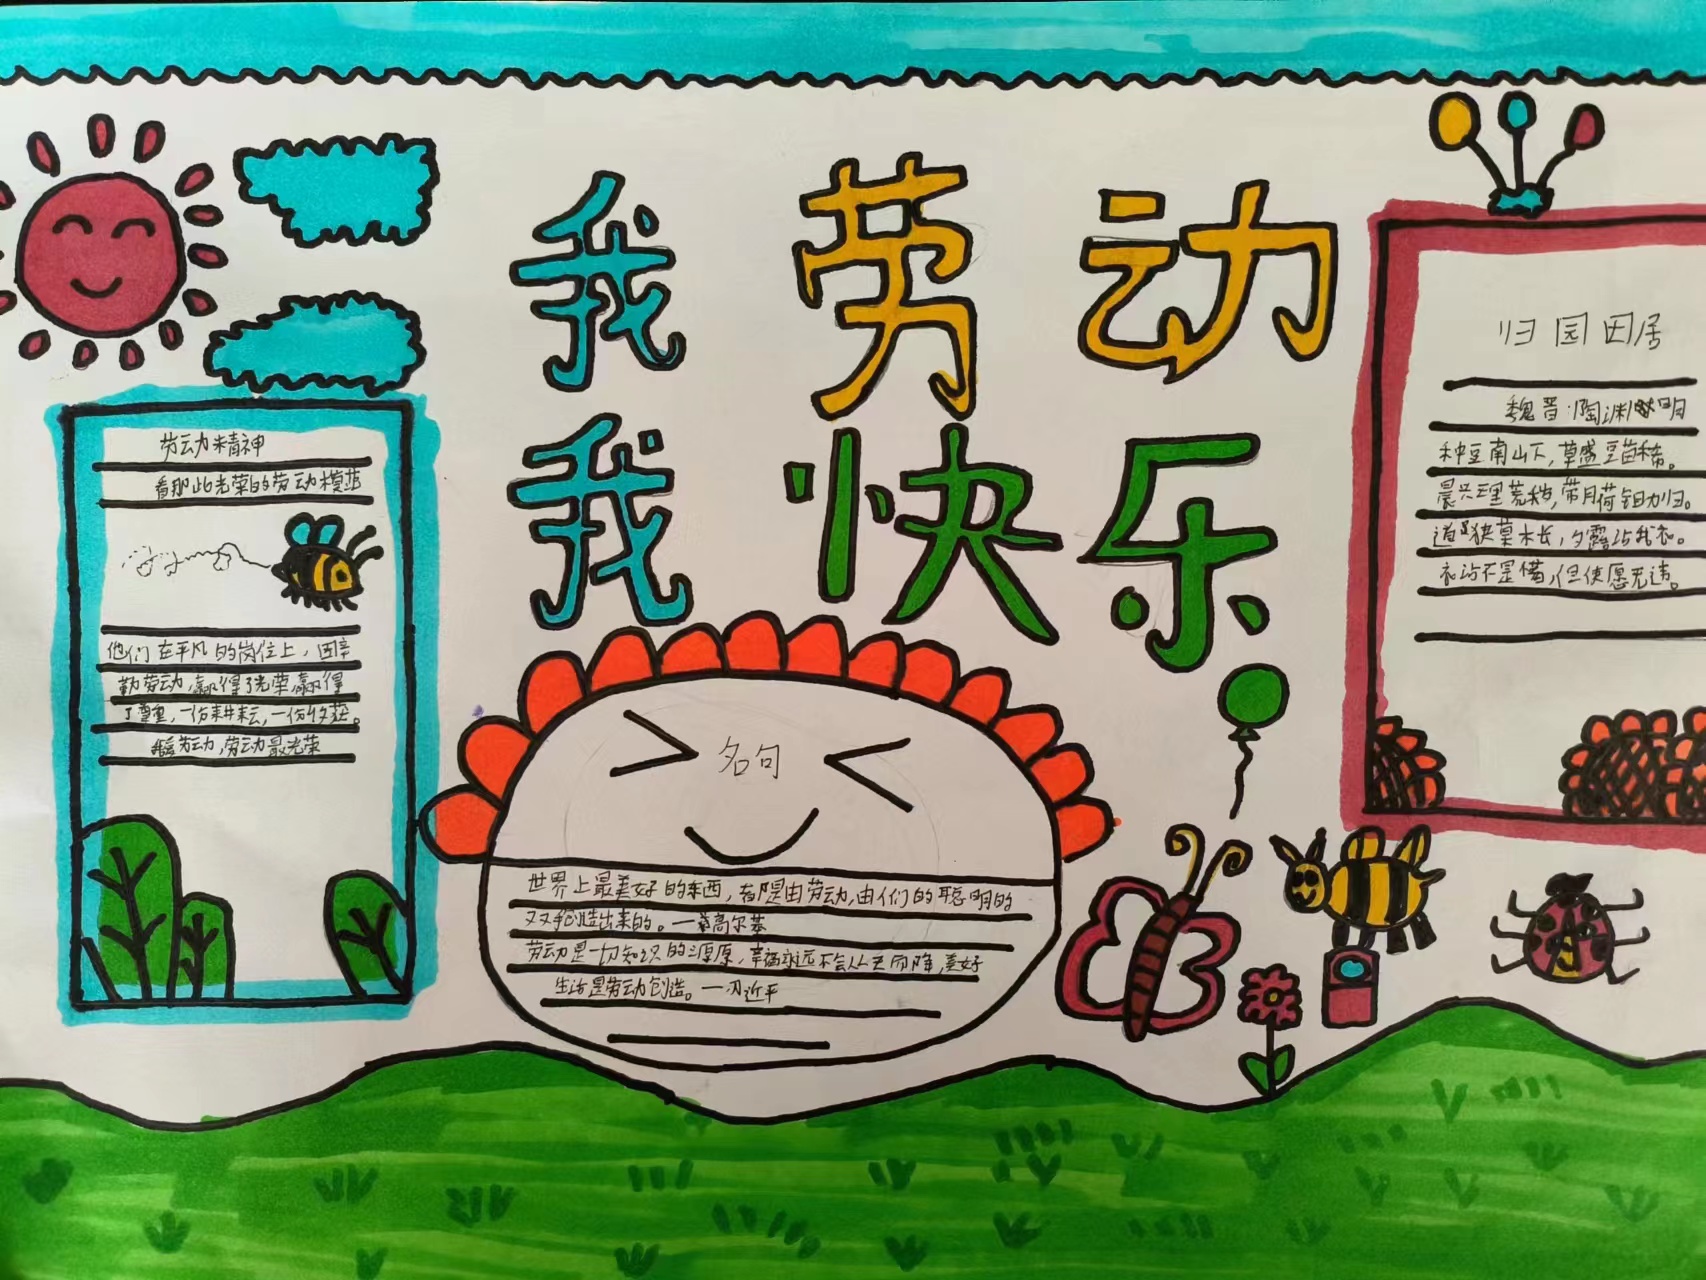 我劳动
我快乐
劳动精神
看那些光荣的劳动模范
他们在平凡的岗位上,因辛
勤劳动,赢得了光荣,赢得
了尊重,一份耕耘,一份收获。
劳动,劳动最光荣
名句
世界上最美好的东西,都是由劳动,由人们的聪明的
双手创造出来的。——高尔基
劳动是一切知识的源原,幸福永远不会从天而降,美好
生活是劳动创造。——习近平
归园田居
魏晋:陶渊明
种豆南山下,草盛豆苗稀。
晨兴理荒秽,带月荷锄归。
道狭草木长,夕露沾我衣。
衣沾不足惜,但使愿无违。